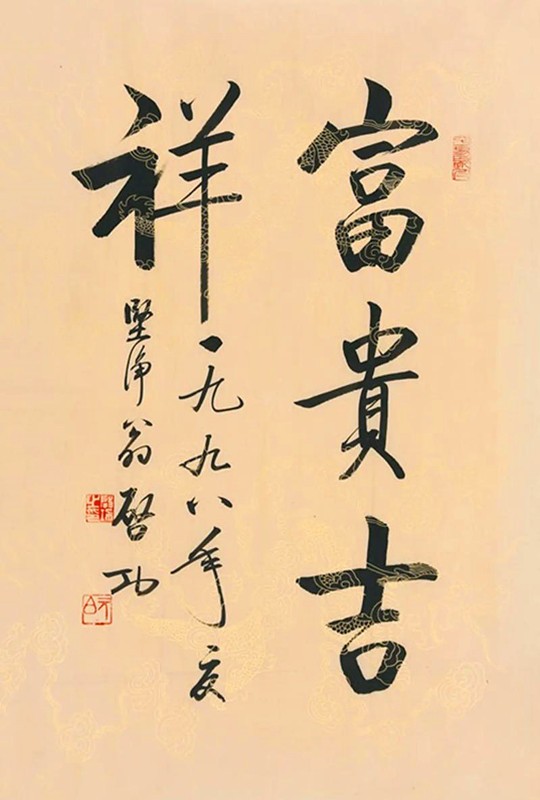 富貴吉
祥一九九八年夏
堅净翁啓功